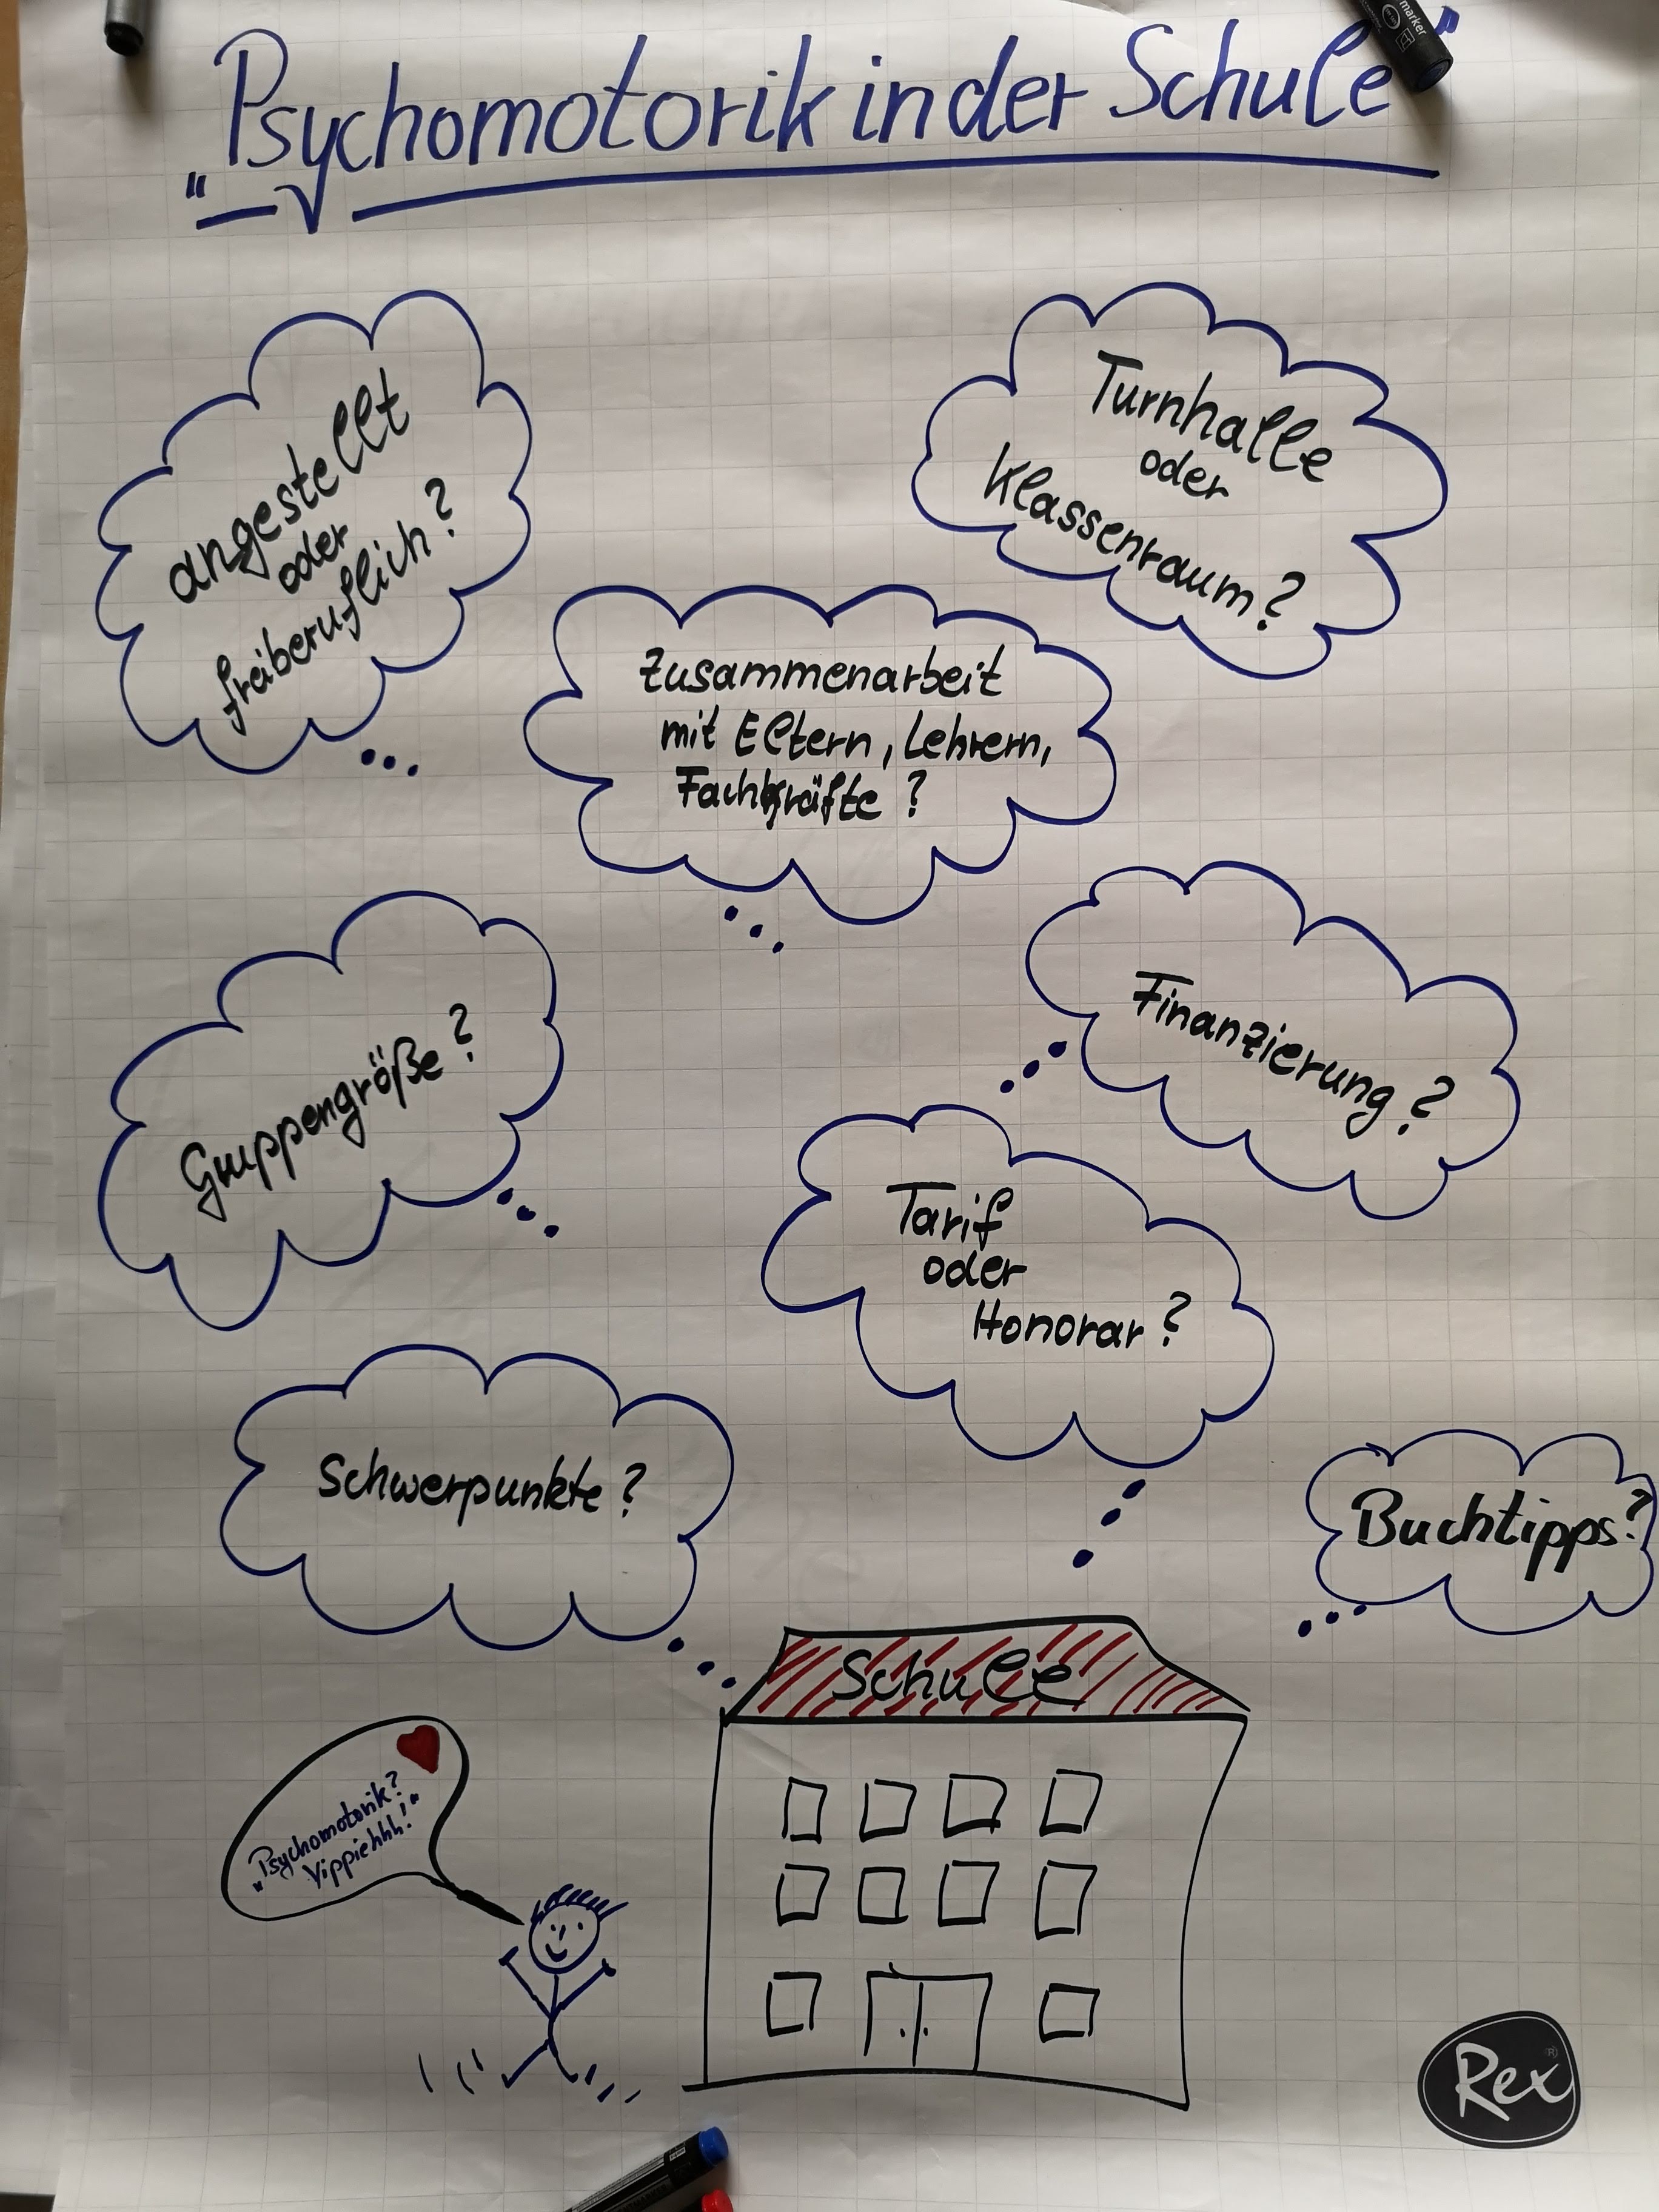 „Psychomotorik in der Schule"
angestellt
oder
freiberuflich?
Turnhalle
oder
Klassenraum?
Zusammenarbeit
mit Eltern, Lehrern,
Fachkräfte?
Finanzierung?
Gruppengröße?
Tarif
oder
Honorar?
Schwerpunkte?
Buchtipps?
Schule
„Psychomotorik?
Yippiehhh!"
Rex
marker